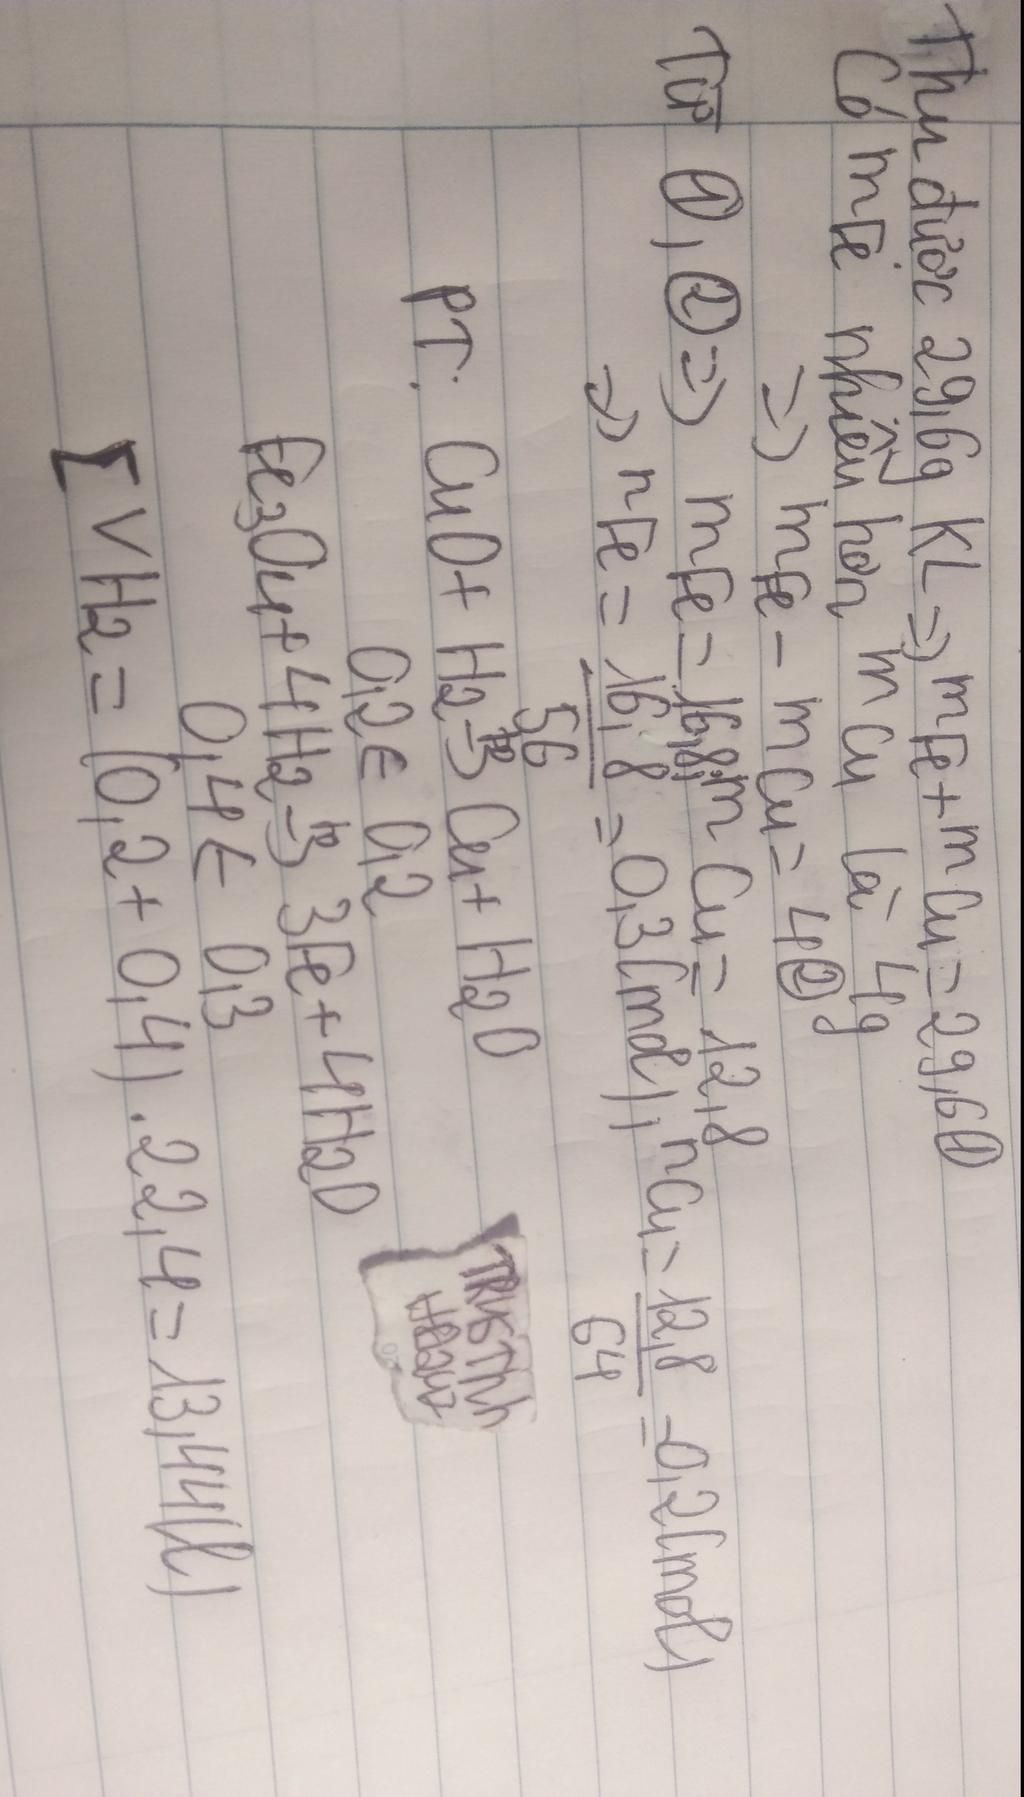 Thu được 29,6g KL => mFe + mCu = 29,6 ①
Có mFe nhiều hơn mCu là 4g
=> mFe - mCu = 4 ②
Từ ①, ② => mFe = 16,8, mCu = 12,8
=> nFe = 16,8/56 = 0,3(mol), nCu = 12,8/64 = 0,2(mol)
PT: CuO + H2 -t°-> Cu + H2O
0,2 ← 0,2
Fe3O4 + 4H2 -t°-> 3Fe + 4H2O
0,4 ← 0,3
ΣVH2 = (0,2 + 0,4) . 22,4 = 13,44(l)